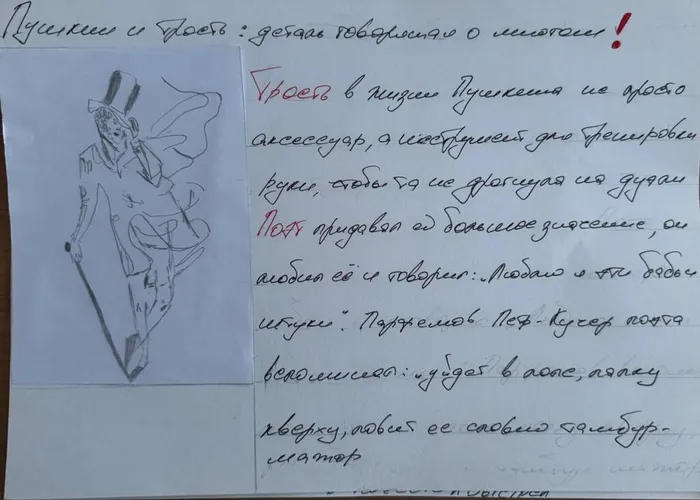 Пушкин и трость: деталь говорящая о многом!
Трость в жизни Пушкина не просто
аксессуар, а инструмент для тренировки
руки, чтобы та не дрогнула на дуэли
Поэт придавал ей большое значение, он
любил её и говорил: „Люблю я эти бабьи
штуки". Парфемов Петр - Кучер поэта
вспоминал: „уйдет в поле, палку
кверху, ловит ее словно тамбур-
мажор